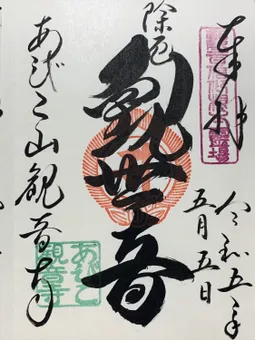 奉拝
令和五年
五月五日
除厄
観世音
あびこ山観音寺
あびこ
観音寺